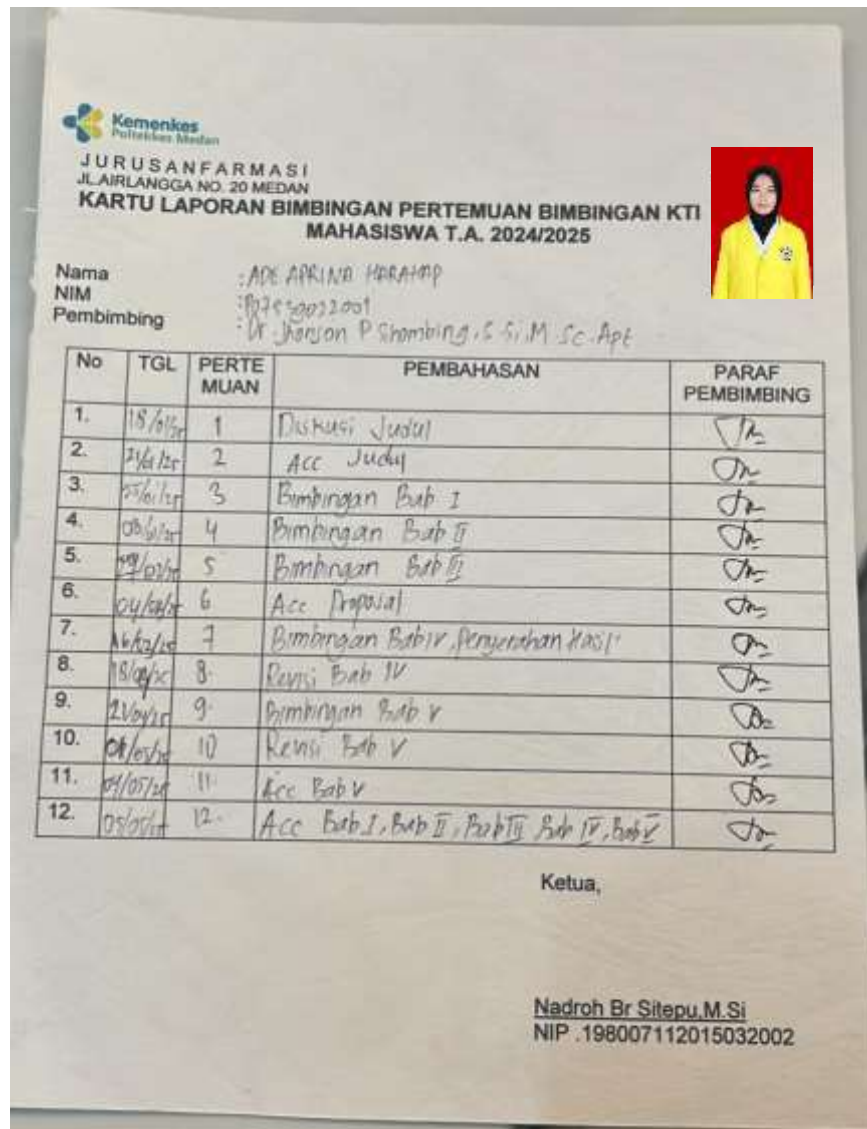 Kemenkes
Poltekkes Medan
JURUSANFARMASI
JL.AIRLANGGA NO. 20 MEDAN
KARTU LAPORAN BIMBINGAN PERTEMUAN BIMBINGAN KTI
MAHASISWA T.A. 2024/2025
Nama : ADE APRINA HARAHAP
NIM :
Pembimbing : Dr. Jhonson P Sihombing, S.Si, M.Sc. Apt
No TGL PERTE MUAN PEMBAHASAN PARAF PEMBIMBING
1. 1 Diskusi Judul
2. 2 Acc Judul
3. 3 Bimbingan Bab I
4. 4 Bimbingan Bab II
5. 5 Bimbingan Bab III
6. 6 Acc Proposal
7. 7 Bimbingan Bab IV, Penyerahan Hasil
8. 8. Revisi Bab IV
9. 9. Bimbingan Bab V
10. 10 Revisi Bab V
11. 11. Acc Bab V
12. 12. Acc Bab I, Bab II, Bab III, Bab IV, Bab V
Ketua,
Nadroh Br Sitepu,M.Si
NIP .198007112015032002